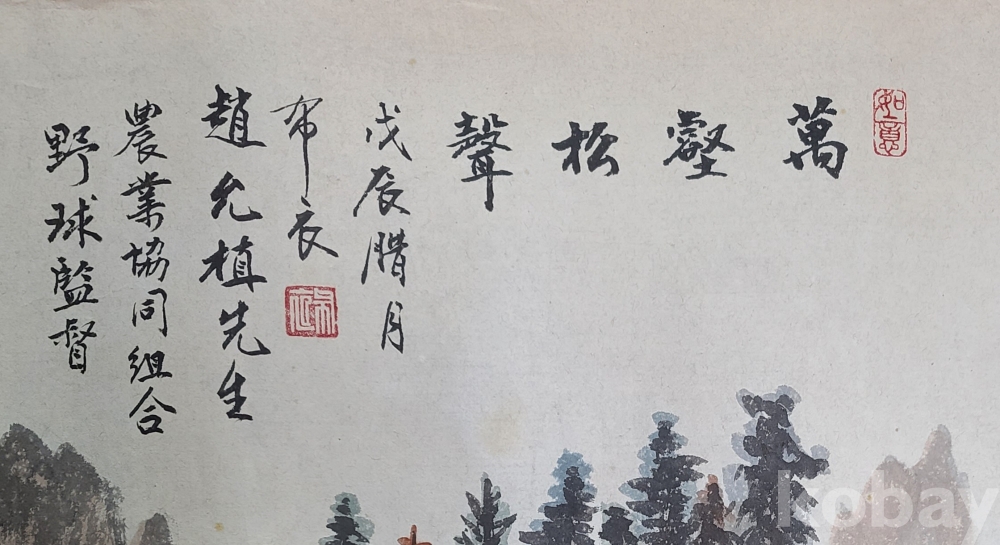 如意
萬壑松聲
戊辰腊月
布衣
趙允植先生
農業協同組合
野球監督
kobay